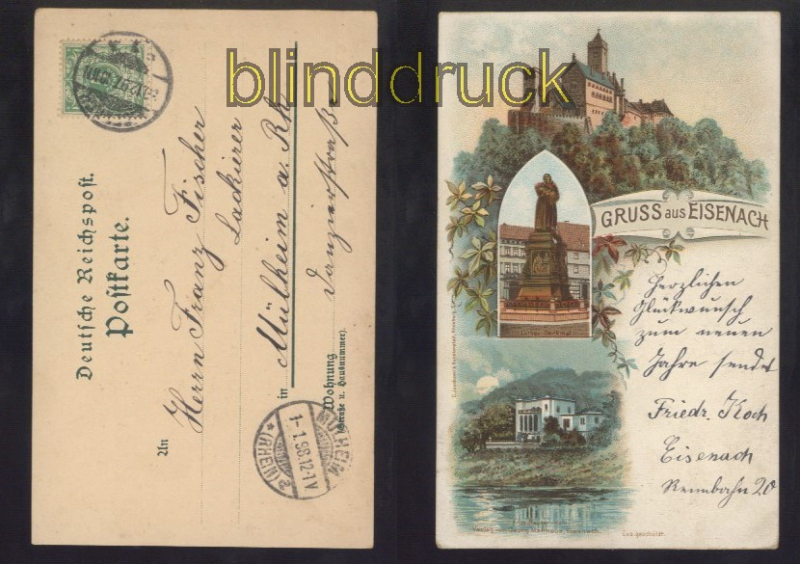 blinddruck
Deutsche Reichspost.
Postkarte.
An
Herrn Franz Fischer
Lackirer
in Mülheim a. Rh.
Wohnung
(Straße u. Hausnummer).
Danzierstraße
MÜLHEIM
1-1.98.12-1V
(RHEIN)
a
GRUSS aus EISENACH
Herzlichen
Glückwunsch
zum neuen
Jahre sendet
Friedr. Koch
Eisenach
Rennbahn 20
Ges. geschützt.